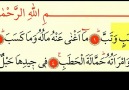 اللهِ الرَّحْمٰنِ
وَتَبَّ ۝ مَا اَغْنٰى عَنْهُ مَالُهُ وَمَا كَسَبَ ۝
وَامْرَاَتُهُ حَمَّالَةَ الْحَطَبِ ۝ فٖى جٖيدِهَا حَبْلٌ